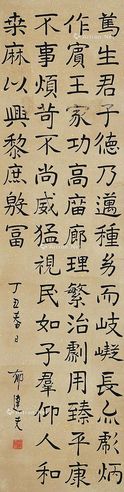 篤生君子德乃邁種幼而岐嶷長亦彪炳
作賓王家功高廊廟理繁治劇用臻平康
不事煩苛不尚威猛視民如子羣仰人和
桒麻以興黎庶殷冨
丁丑春日